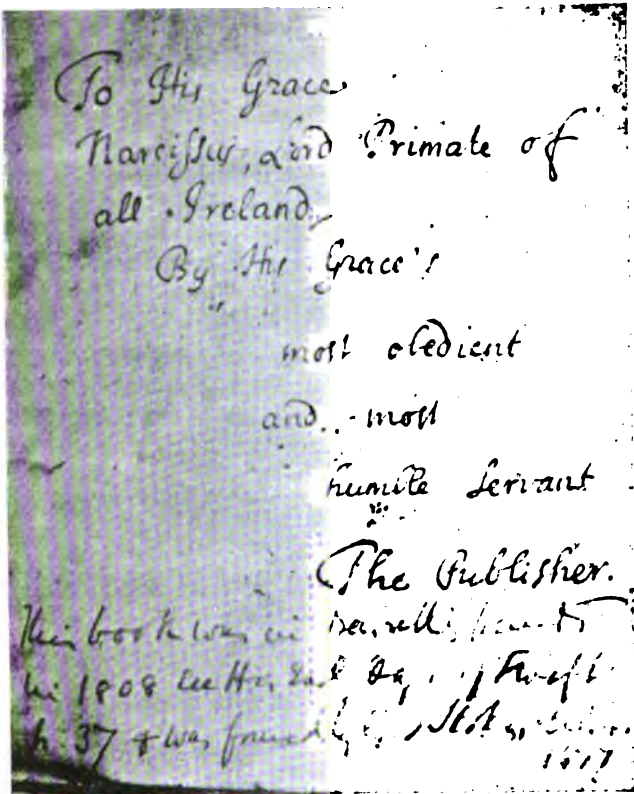 To His Grace
Narcissus, Lord Primate of
all Ireland,
By His Grace's
most obedient
and most
humble Servant
The Publisher.
This book was in
in 1808
p. 37 & was found